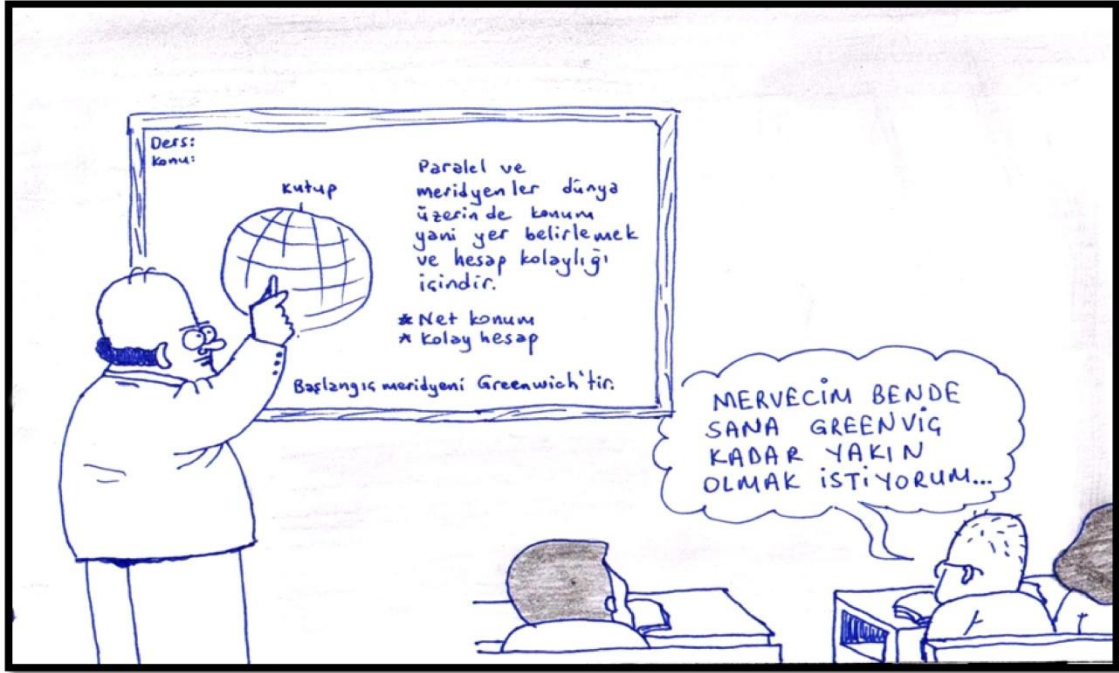 Ders:
Konu:
Kutup
Paralel ve
meridyenler dünya
üzerinde konum
yani yer belirlemek
ve hesap kolaylığı
içindir.
* Net konum
* Kolay hesap
Başlangıç meridyeni Greenwich'tir.
MERVECİM BENDE
SANA GREENVİÇ
KADAR YAKIN
OLMAK İSTİYORUM...